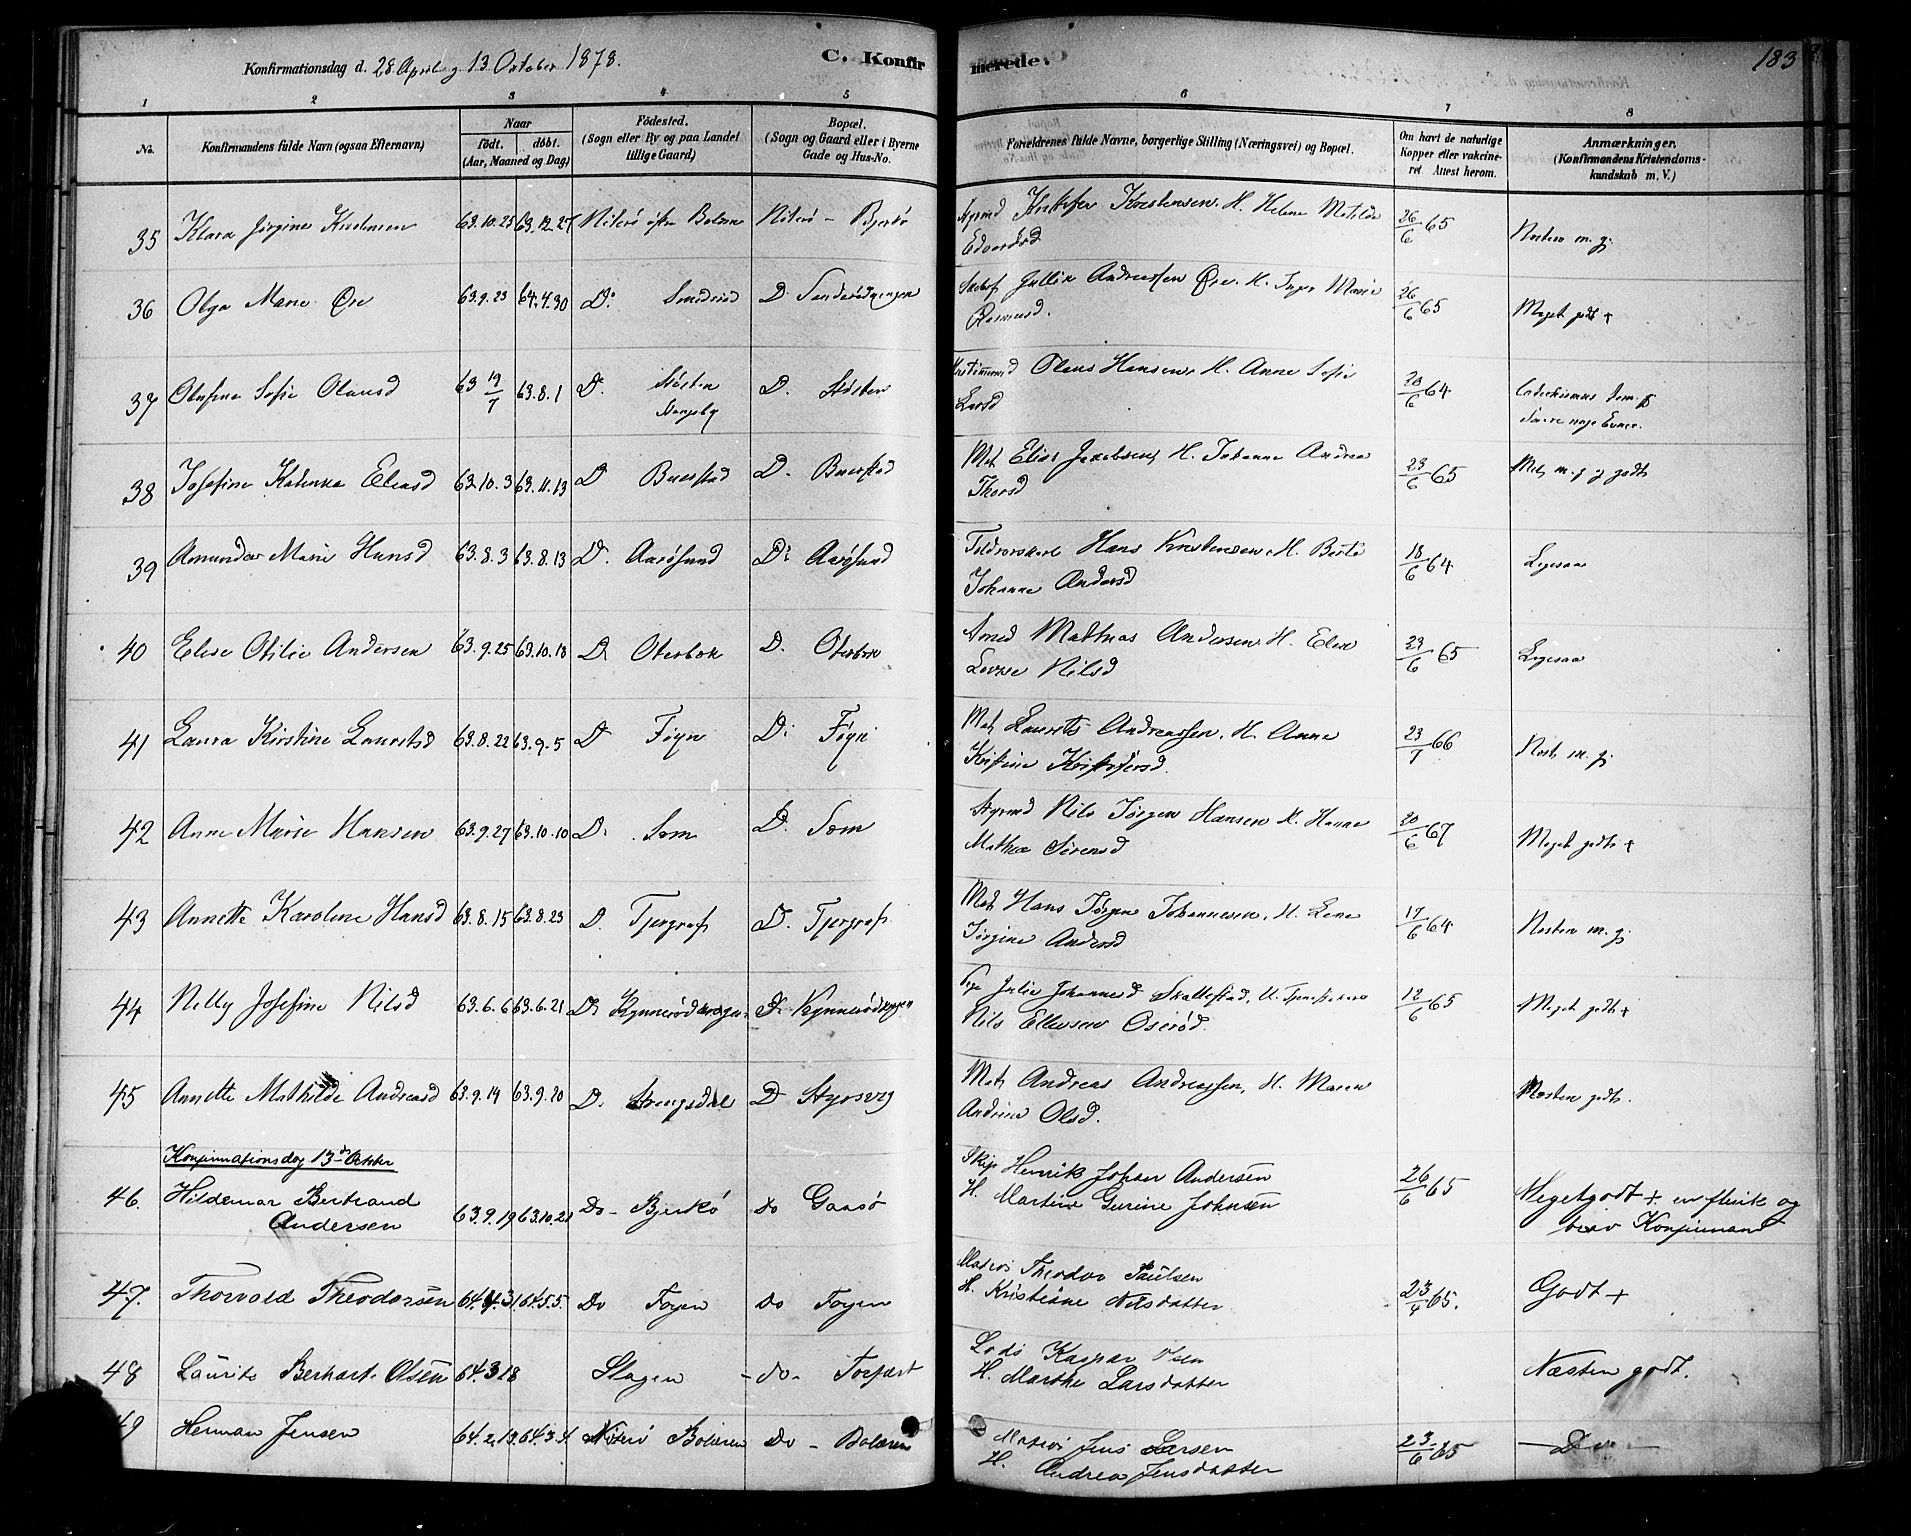 Konfirmationsdag d. 28 April og 13 Oktober 1878.
C. Konfirmerede.
183
1 2 3 4 5 6 7 8
No.
Konfirmandens fulde Navn (ogsaa Efternavn)
Naar
født. døbt.
(Aar, Maaned og Dag)
Fødested.
(Sogn eller By og paa Landet
tillige Gaard)
Bopæl.
(Sogn og Gaard eller i Byerne
Gade og Hus-No.
Forældrenes fulde Navne, borgerlige Stilling (Næringsvei) og Bopæl.
Om havt de naturlige
Kopper eller vakcine-
ret Attest herom.
Anmærkninger.
(Konfirmandens Kristendoms-
kundskab m. V.)
35 Klara Jørgine Kristensen 63.10.25 63.12.27 Nøterø Nøterø - Bjerkø Styrmd Kristofer Kristensen, H. Helene Matilde 26/6 65 Nesten m. g.
Edvardsd
36 Olga Marie Øre 63.9.23 64.4.30 Do. Smidsrød D. Jullik Andreassen Øre, H. Inger Marie 26/6 65 Meget godt +
Rasmusd.
37 Olufine Sofie Olausd 63 19/7 63.8.1 D. Støsten D. Støsten Olaus Hansen, H. Anne Sofie 20/6 64
Larsd
38 Josefine Katinka Eliasd 63.10.3 63.11.13 D Buerstad D. Buerstad Mat. Elias Jakobsen, H. Johanne Andrea 23/6 65 Mel. m. g. og godt
Thorsd
39 Amunda Marie Hansd 63.8.3 63.8.13 D. Aarøsund D. Aarøsund Toldrorskarl Hans Kristensen, H. Berte 18/6 64 Ligesaa
Johanne Andersd
40 Elise Otilie Andersen 63.9.25 63.10.18 D Oterbæk D. Oterbæk Mathias Andersen, H. Elen 23/6 65 Ligesaa
Lovise Nilsd
41 Laura Kirstine Lauritsd 63.8.22 63.9.5 D Føyn D. Føyn Mat. Laurits Andreassen, H. Anne 23/7 66 Nest. m. g.
Kristine Kristofersd.
42 Anne Marie Hansen 63.9.27 63.10.10 D. Sem D. Sem Styrmd Nils Jørgen Hansen H. Hanne 20/6 67 Meget godt +
Mathea Sørensd
43 Annette Karoline Hansd 63.8.15 63.8.23 D. Tjergraf D. Tjergraf Mat. Hans Jørgen Johannesen, H. Lene 17/6 64 Nesten m. g.
Jørgine Andersd
44 Nelly Josefine Nilsd 63.6.6 63.6.21 D. Kynnerødskogen D. Kynnerødskogen Pige Julie Johannesd Skallestad, U. 12/6 65 Meget godt +
Nils Ellevsen Oserød.
45 Annette Mathilde Andreasd 63.9.14 63.9.20 D. Strengsdal D Styrsvig Mat. Andreas Andreassen, H. Maren Nesten godt.
Andrine Olsd.
Konfirmationsdag 13de Oktober
46. Hildemar Bertrand 63.9.19 63.10.21 Do - Bjerkø do Gaasø Skip Henrik Johan Andersen 26/6 65 Megetgodt + en flink og
Andersen H. Martine Gurine Johnsen brav Konfirmant
47. Thorvald Theodorsen 64.4.3 64.5.5. Do Føyen do Føyen Matros Theodor Paulsen 23/4 65. Godt +
H. Kristiane Nilsdatter
48 Laurits Berhart Olsen 64.3.18 Slagen - do - Torfæst Lods Kaspar Olsen Næsten godt.
H. Marthe Larsdatter
49 Herman Jensen 64.2.13 64.3.4. Nøterø Bolæren Do - Bolæren Matros Jens Larsen 23/6 65 — Do —
H. Andrea Jensdatter